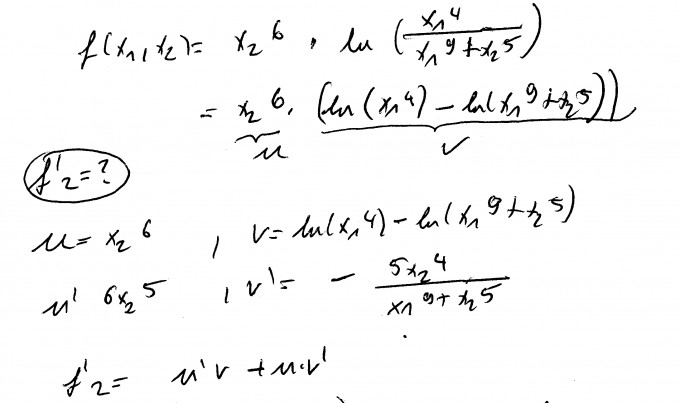 f(x₁,x₂)= x₂⁶ · ln (x₁⁴/(x₁⁹+x₂⁵))
= x₂⁶ · (ln(x₁⁴) - ln(x₁⁹+x₂⁵))
u v
f'₂=?
u= x₂⁶ , v= ln(x₁⁴) - ln(x₁⁹+x₂⁵)
u' 6x₂⁵ , v'= - 5x₂⁴/(x₁⁹+x₂⁵)
f'₂= u'v + u·v'